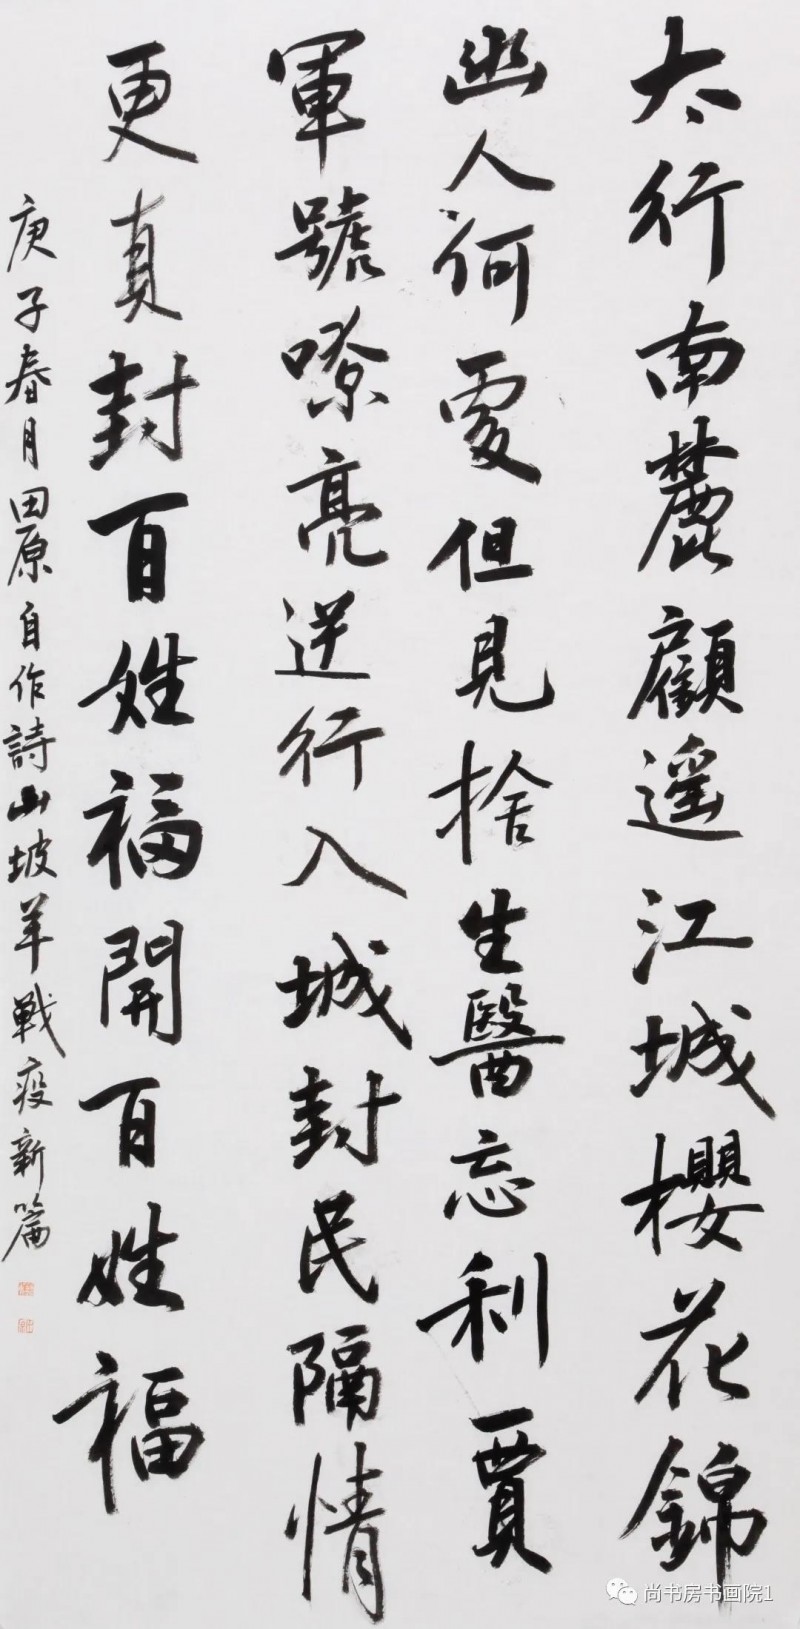 太行南麓顧遥江城櫻花錦
幽人何處但見捨生醫忘利賈
軍號嘹亮逆行入城封民隔情
更真封百姓福開百姓福
庚子春月田原自作詩山坡羊戰疫新篇
尚书房书画院1